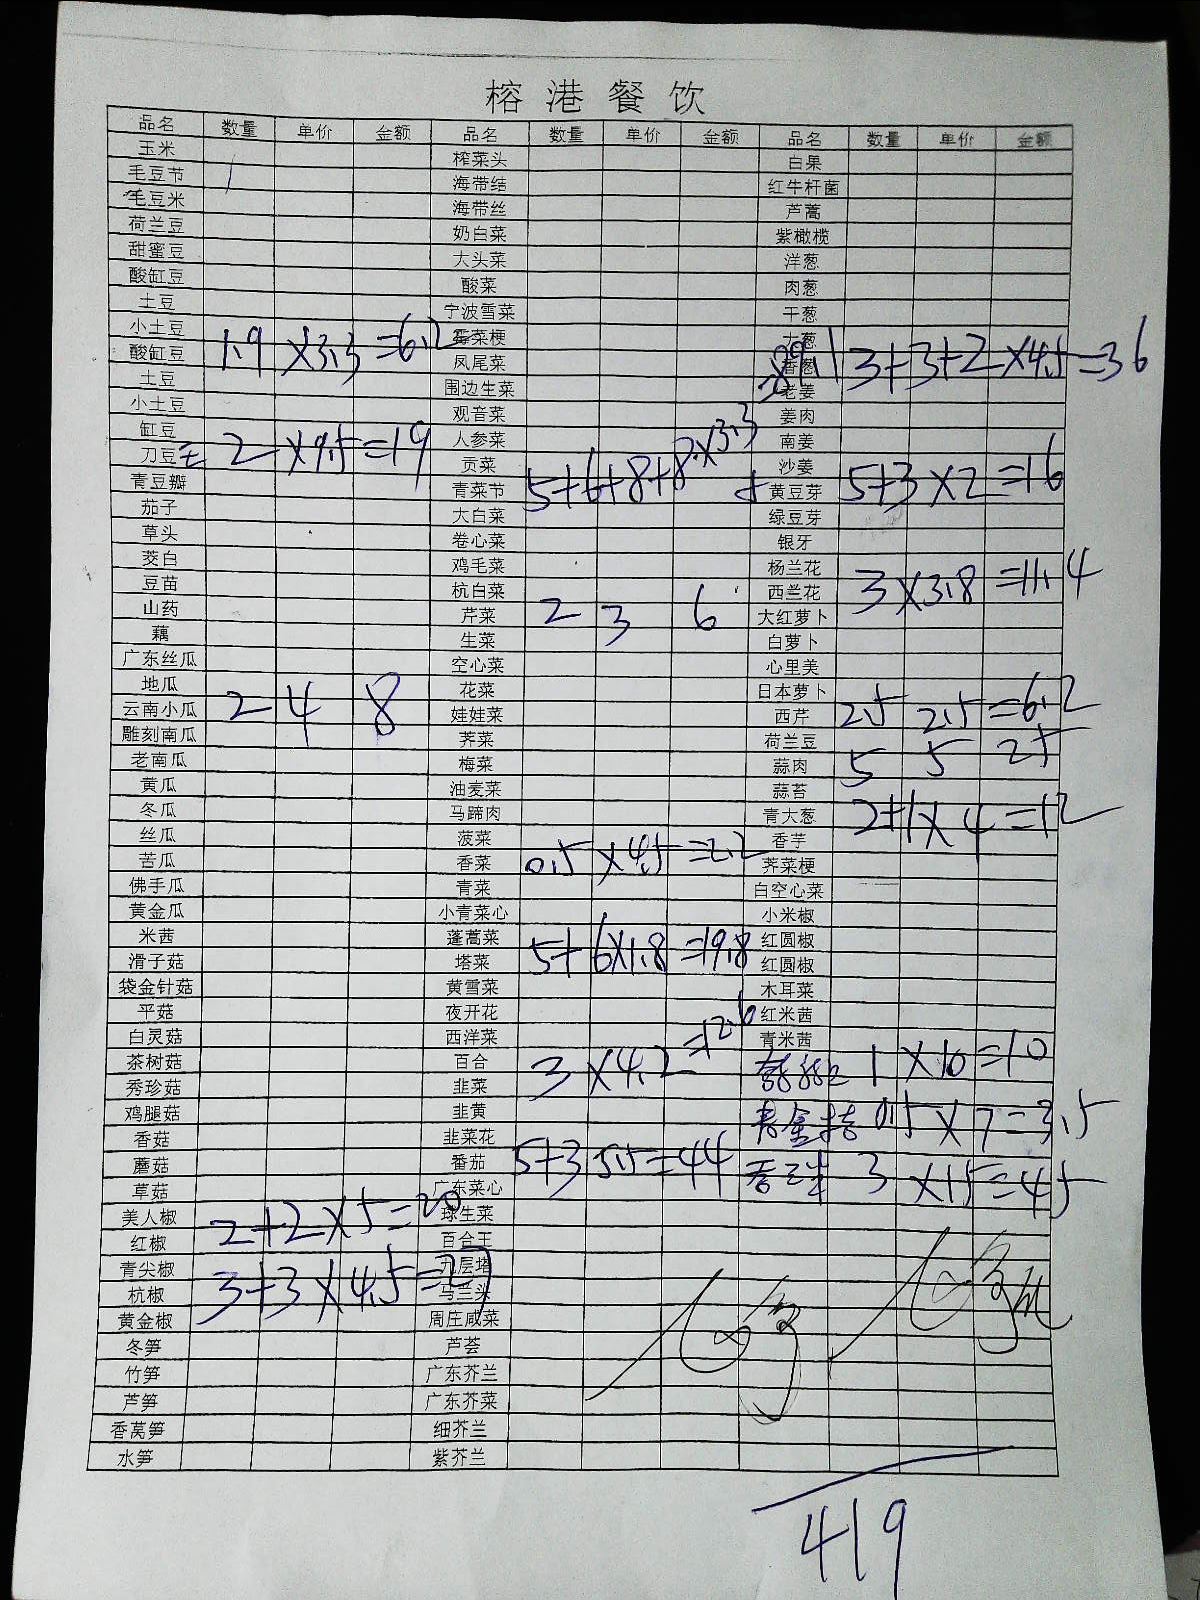 榕港餐饮
品名 数量 单价 金额 品名 数量 单价 金额 品名 数量 单价 金额
玉米 榨菜头 白果
毛豆节 海带结 红牛杆菌
毛豆米 海带丝 芦蒿
荷兰豆 奶白菜 紫橄榄
甜蜜豆 大头菜 洋葱
酸缸豆 酸菜 肉葱
土豆 宁波雪菜 干葱
小土豆 莓菜梗 大葱
酸缸豆 1.9 ×3.3 =6.2 凤尾菜 香葱 3+3+2 ×4.5 =36
土豆 围边生菜 老姜
小土豆 观音菜 姜肉
缸豆 人参菜 南姜
刀豆 2 ×9.5 =19 贡菜 沙姜
青豆瓣 青菜节 5+6+8+8 ×3.3 黄豆芽 5+3 ×2 =16
茄子 大白菜 绿豆芽
草头 卷心菜 银牙
茭白 鸡毛菜 杨兰花
豆苗 杭白菜 西兰花 3 ×3.8 =11.4
山药 芹菜 2 3 6 大红萝卜
藕 生菜 白萝卜
广东丝瓜 空心菜 心里美
地瓜 花菜 日本萝卜
云南小瓜 2 4 8 娃娃菜 西芹 2.5 2.5 =6.2
雕刻南瓜 荠菜 荷兰豆
老南瓜 梅菜 蒜肉 5 5 25
黄瓜 油麦菜 蒜苔
冬瓜 马蹄肉 青大葱 2+1 × 4 =12
丝瓜 菠菜 香芋
苦瓜 香菜 0.5 ×4.5 =2.2 荠菜梗
佛手瓜 青菜 白空心菜
黄金瓜 小青菜心 小米椒
米茜 蓬蒿菜 5+6 ×1.8 =19.8 红圆椒
滑子菇 塔菜 红圆椒
袋金针菇 黄雪菜 木耳菜
平菇 夜开花 红米茜
白灵菇 西洋菜 青米茜
茶树菇 百合 3 ×4.2 =12.6 1 ×10 =10
秀珍菇 韭菜
鸡腿菇 韭黄 0.5 ×7 =3.5
香菇 韭菜花
蘑菇 番茄 5+3 5.5 =44 3 ×15 =45
草菇 广东菜心
美人椒 2+2 ×5 =20 球生菜
红椒 百合王
青尖椒 九层塔
杭椒 3+3 ×4.5 =27 马兰头
黄金椒 周庄咸菜
冬笋 芦荟
竹笋 广东芥兰
芦笋 广东芥菜
香莴笋 细芥兰
水笋 紫芥兰
419